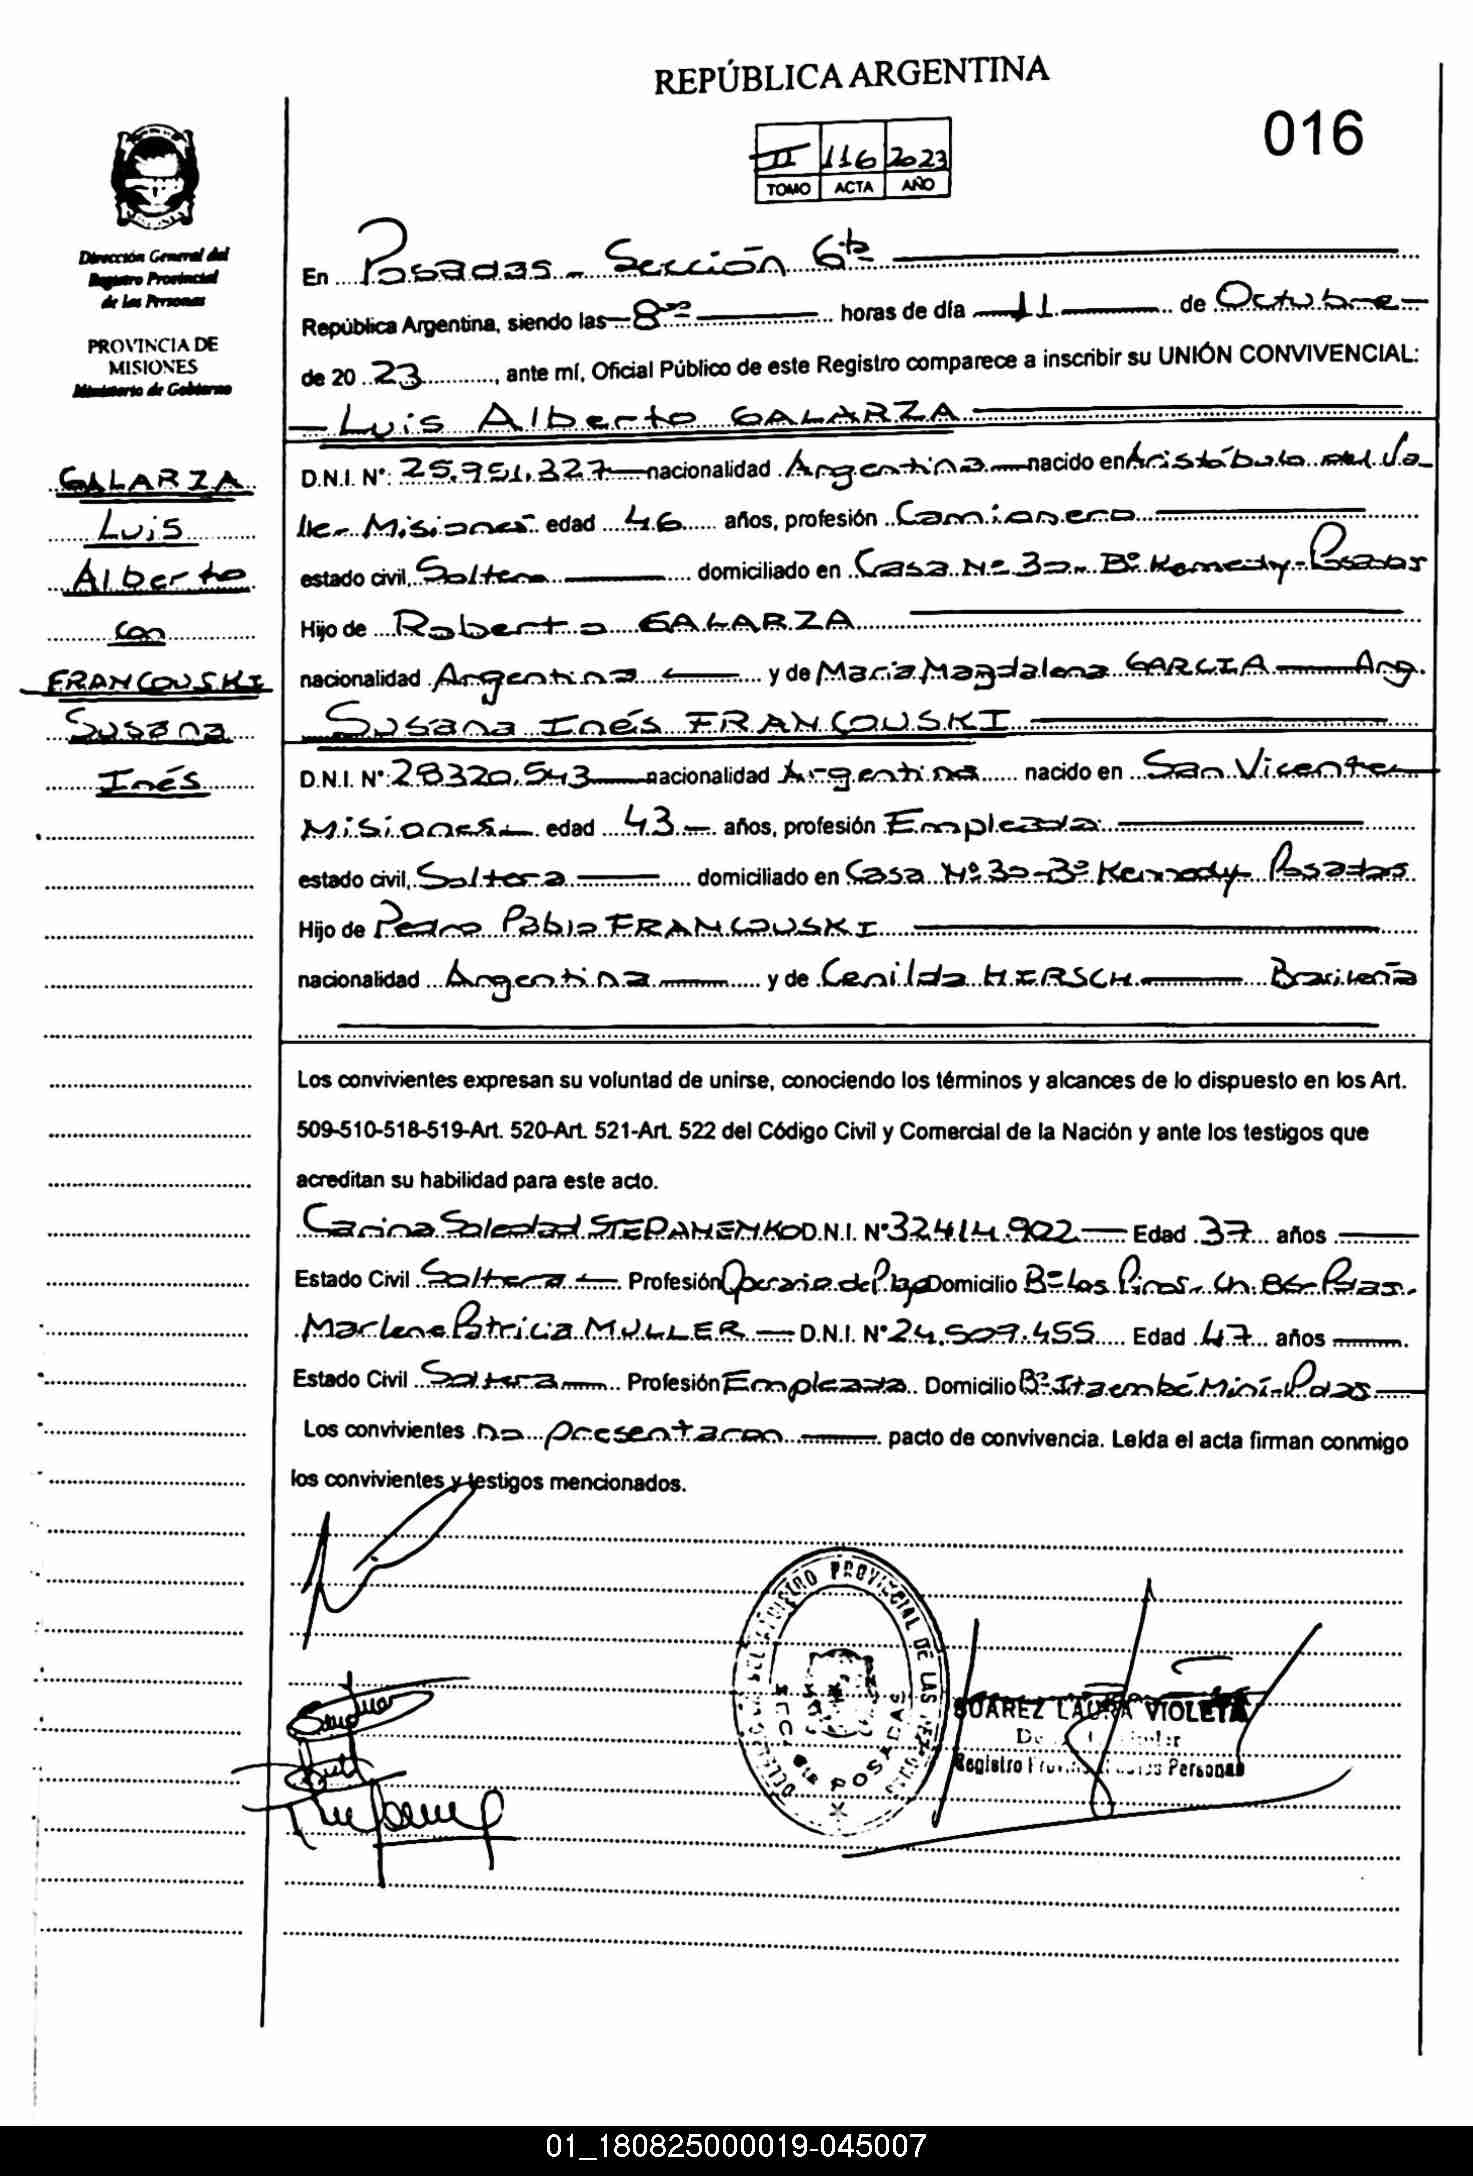 REPÚBLICA ARGENTINA
016
II 116 2023
TOMO ACTA AÑO
Dirección General del
Registro Provincial
de las Personas
PROVINCIA DE
MISIONES
Ministerio de Gobierno
GALARZA
Luis
Alberto
con
FRANCOUSKI
Susana
Inés
En Posadas - Sección 6ta
República Argentina, siendo las 8 horas de día 11 de Octubre
de 20 23, ante mí, Oficial Público de este Registro comparece a inscribir su UNIÓN CONVIVENCIAL:
Luis Alberto GALARZA
D.N.I. N°: 25.951.327 nacionalidad Argentina nacido en Aristóbulo del Va
lle- Misiones edad 46 años, profesión Camionero
estado civil, Soltero domiciliado en Casa Nº 30 Bº Kennedy - Posadas
Hijo de Roberto GALARZA
nacionalidad Argentina y de María Magdalena GARCIA Arg.
Susana Inés FRANCOUSKI
D.N.I. N° 28320.543 nacionalidad Argentina nacido en San Vicente
Misiones edad 43 años, profesión Empleada
estado civil, Soltera domiciliado en Casa Nº 30 - Bº Kennedy Posadas
Hijo de Pedro Pablo FRANCOUSKI
nacionalidad Argentina y de Cenilda HIRSCH Brasileña
Los convivientes expresan su voluntad de unirse, conociendo los términos y alcances de lo dispuesto en los Art.
509-510-518-519-Art. 520-Art. 521-Art. 522 del Código Civil y Comercial de la Nación y ante los testigos que
acreditan su habilidad para este acto.
Carina Soledad STEPANENKO D.N.I. N° 32414.902 Edad 37 años
Estado Civil Soltera Profesión Operario de Domicilio Bº Los Pinos - Ch. 86 - Pdas.
Marlene Patricia MULLER D.N.I. N° 24.509.455 Edad 47 años
Estado Civil Soltera Profesión Empleada Domicilio Bº Itaembé Miní - Pdas
Los convivientes no presentaron pacto de convivencia. Leída el acta firman conmigo
los convivientes y testigos mencionados.
REGISTRO PROVINCIAL DE LAS PERSONAS
SECC. 6ta POSADAS
SUAREZ LAURA VIOLETA
Registro Provincial de las Personas
01_180825000019-045007